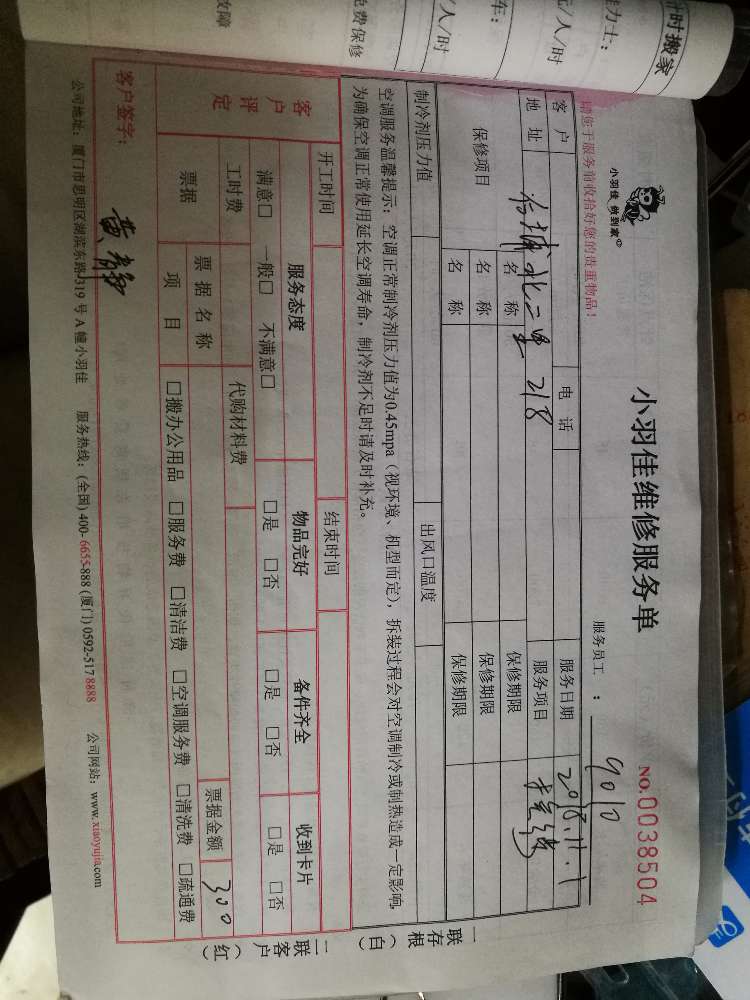 时搬家
力士：
元/人/时
车：
/人/时
免费保修
故障
小羽佳 做到家
小羽佳维修服务单
NO.0038504
请您于服务前收拾好您的贵重物品！
服务员工 ： 9010
客 户
电 话
服务日期
2018.11.1
地 址
北二里 218
服务项目
保修项目
名 称
保修期限
名 称
保修期限
名 称
保修期限
制冷剂压力值
出风口温度
空调服务温馨提示：空调正常制冷剂压力值为0.45mpa（视环境、机型而定），拆装过程会对空调制冷或制热造成一定影响，
为确保空调正常使用延长空调寿命，制冷剂不足时请及时补充。
开工时间
结束时间
客户评定
服务态度
物品完好
备件齐全
收到卡片
满意□ 一般□ 不满意□
□是 □否
□是 □否
□是 □否
工时费
代购材料费
票据
票 据 名 称
票据金额
300
项 目
□搬办公用品 □服务费 □清洁费 □空调服务费 □清洗费 □疏通费
客户签字：
黄静
公司地址：厦门市思明区湖滨东路319号A幢小羽佳 服务热线：(全国) 400-6655-888 (厦门) 0592-5178888 公司网站：www.xiaoyujia.com
一联存根（白）
二联客户（红）